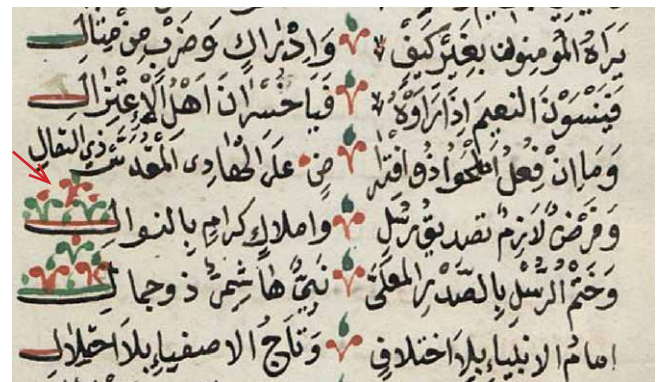 يَرَاهُ الْمُومِنُونَ بِغَيْرِ كَيْفٍ وَاِدْرَاكٍ وَضَرْبٍ مِنْ مِثَالِ
فَيَنْسَوْنَ النَّعِيمَ اِذَا رَاَوْهُ فَيَا خُسْرَانَ اَهْلِ الْاِعْتِزَالِ
وَمَا اِنْ فِعْلُ ذُو افْتِرَا ضٍ عَلَى الْهَادِى الْمُقَدَّسِ ذِي التعالِ
وَفَرْضٌ لَازِمٌ تصديقُ رُسْلٍ واملاكٍ كرامٍ بِالنوالِ
وَخَتْمُ الرُّسْلِ بِالصَّدْرِ المعلَّى نَبِيٌّ هَاشِمِيٌّ ذو جمالِ
امامُ الانبياءِ بلا اختلافٍ وَتَاجُ الاصفياءِ بِلَا احْتِلَالِ